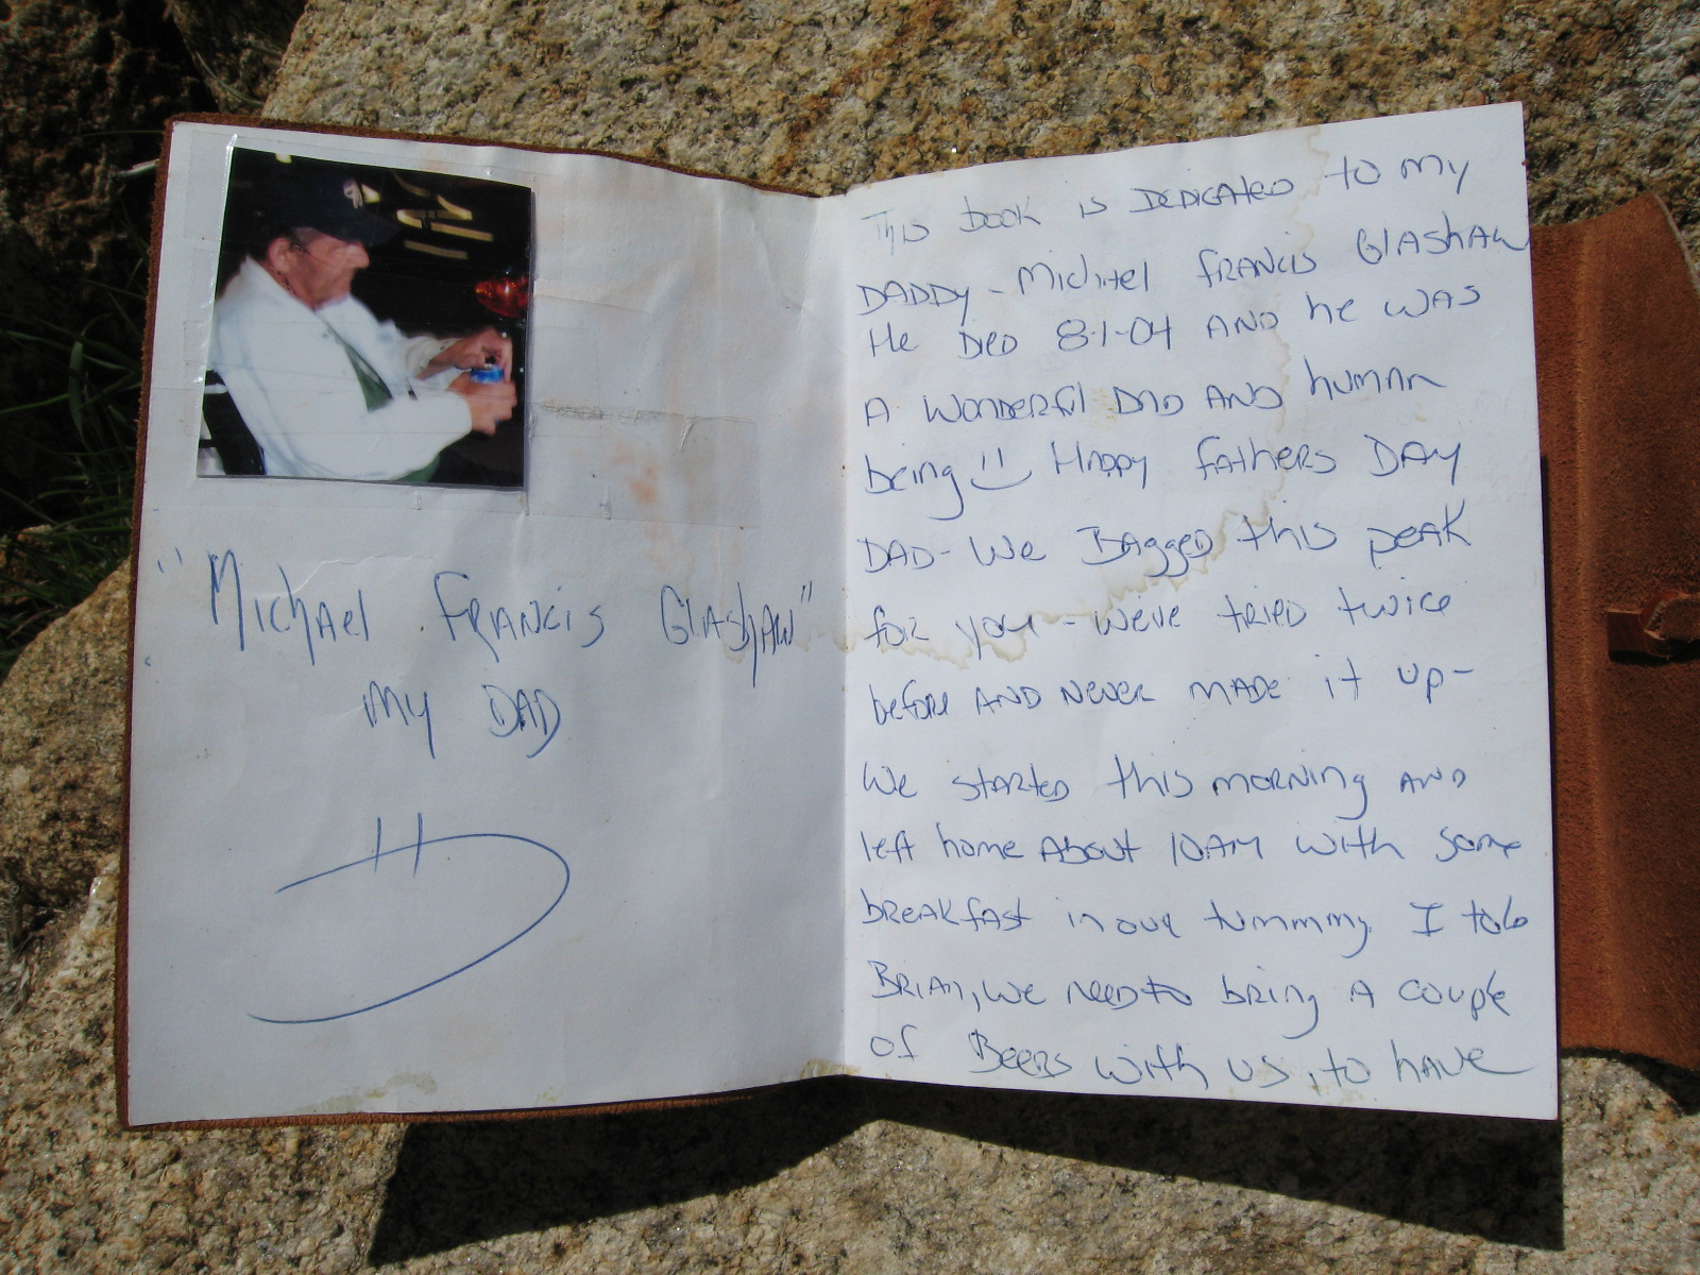 "Michael Francis Glashaw"
My DAD
This book is DEDICATED to my
DADDY - Michael FRANCIS GlAShAW
He DIED 8-1-04 AND he WAS
A WONDERful DAD AND human
being Happy fAthers DAY
DAD - We BAgged this peak
for you - we've tried twice
before AND never MADE it up -
We started this morning AND
left home About 10AM with some
breakfast in our tummy. I told
BRIAN, we need to bring A couple
of Beers with us, to have